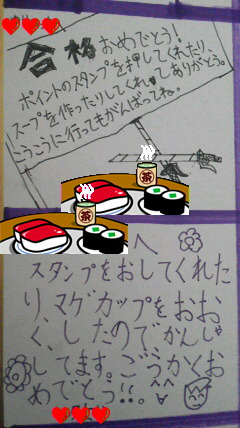 合格おめでとう!
ポイントのスタンプを押してくれたり、
スープを作ったりしてくれてありがとう。
こうこうに行ってもがんばってね。
茶
茶
へ
スタンプをおしてくれた
り、マグカップをおお
く、したのでかんしゃ
してます。ごうかくお
めでとう!!。^^